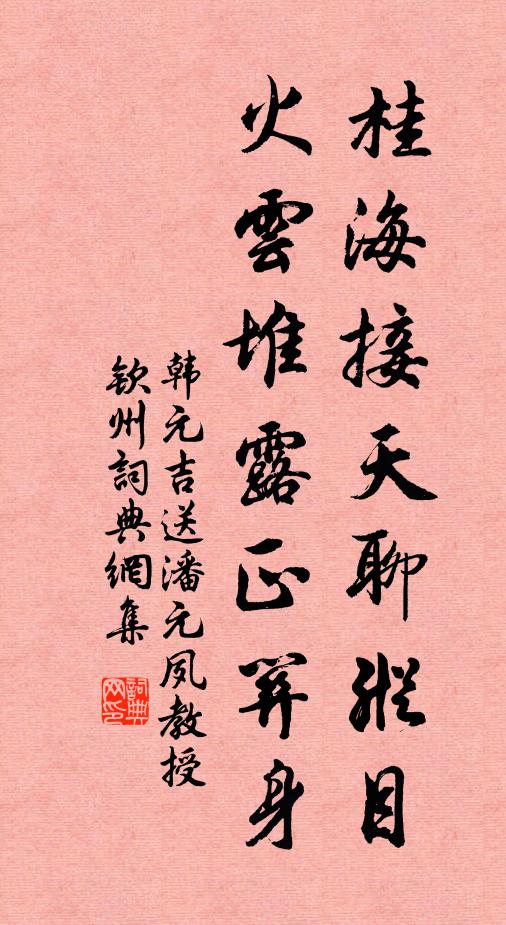 桂海接天聊縱目
火雲堆露正募身
韩元吉送潘元夙教授
欽州詞典網集
詞典
网印